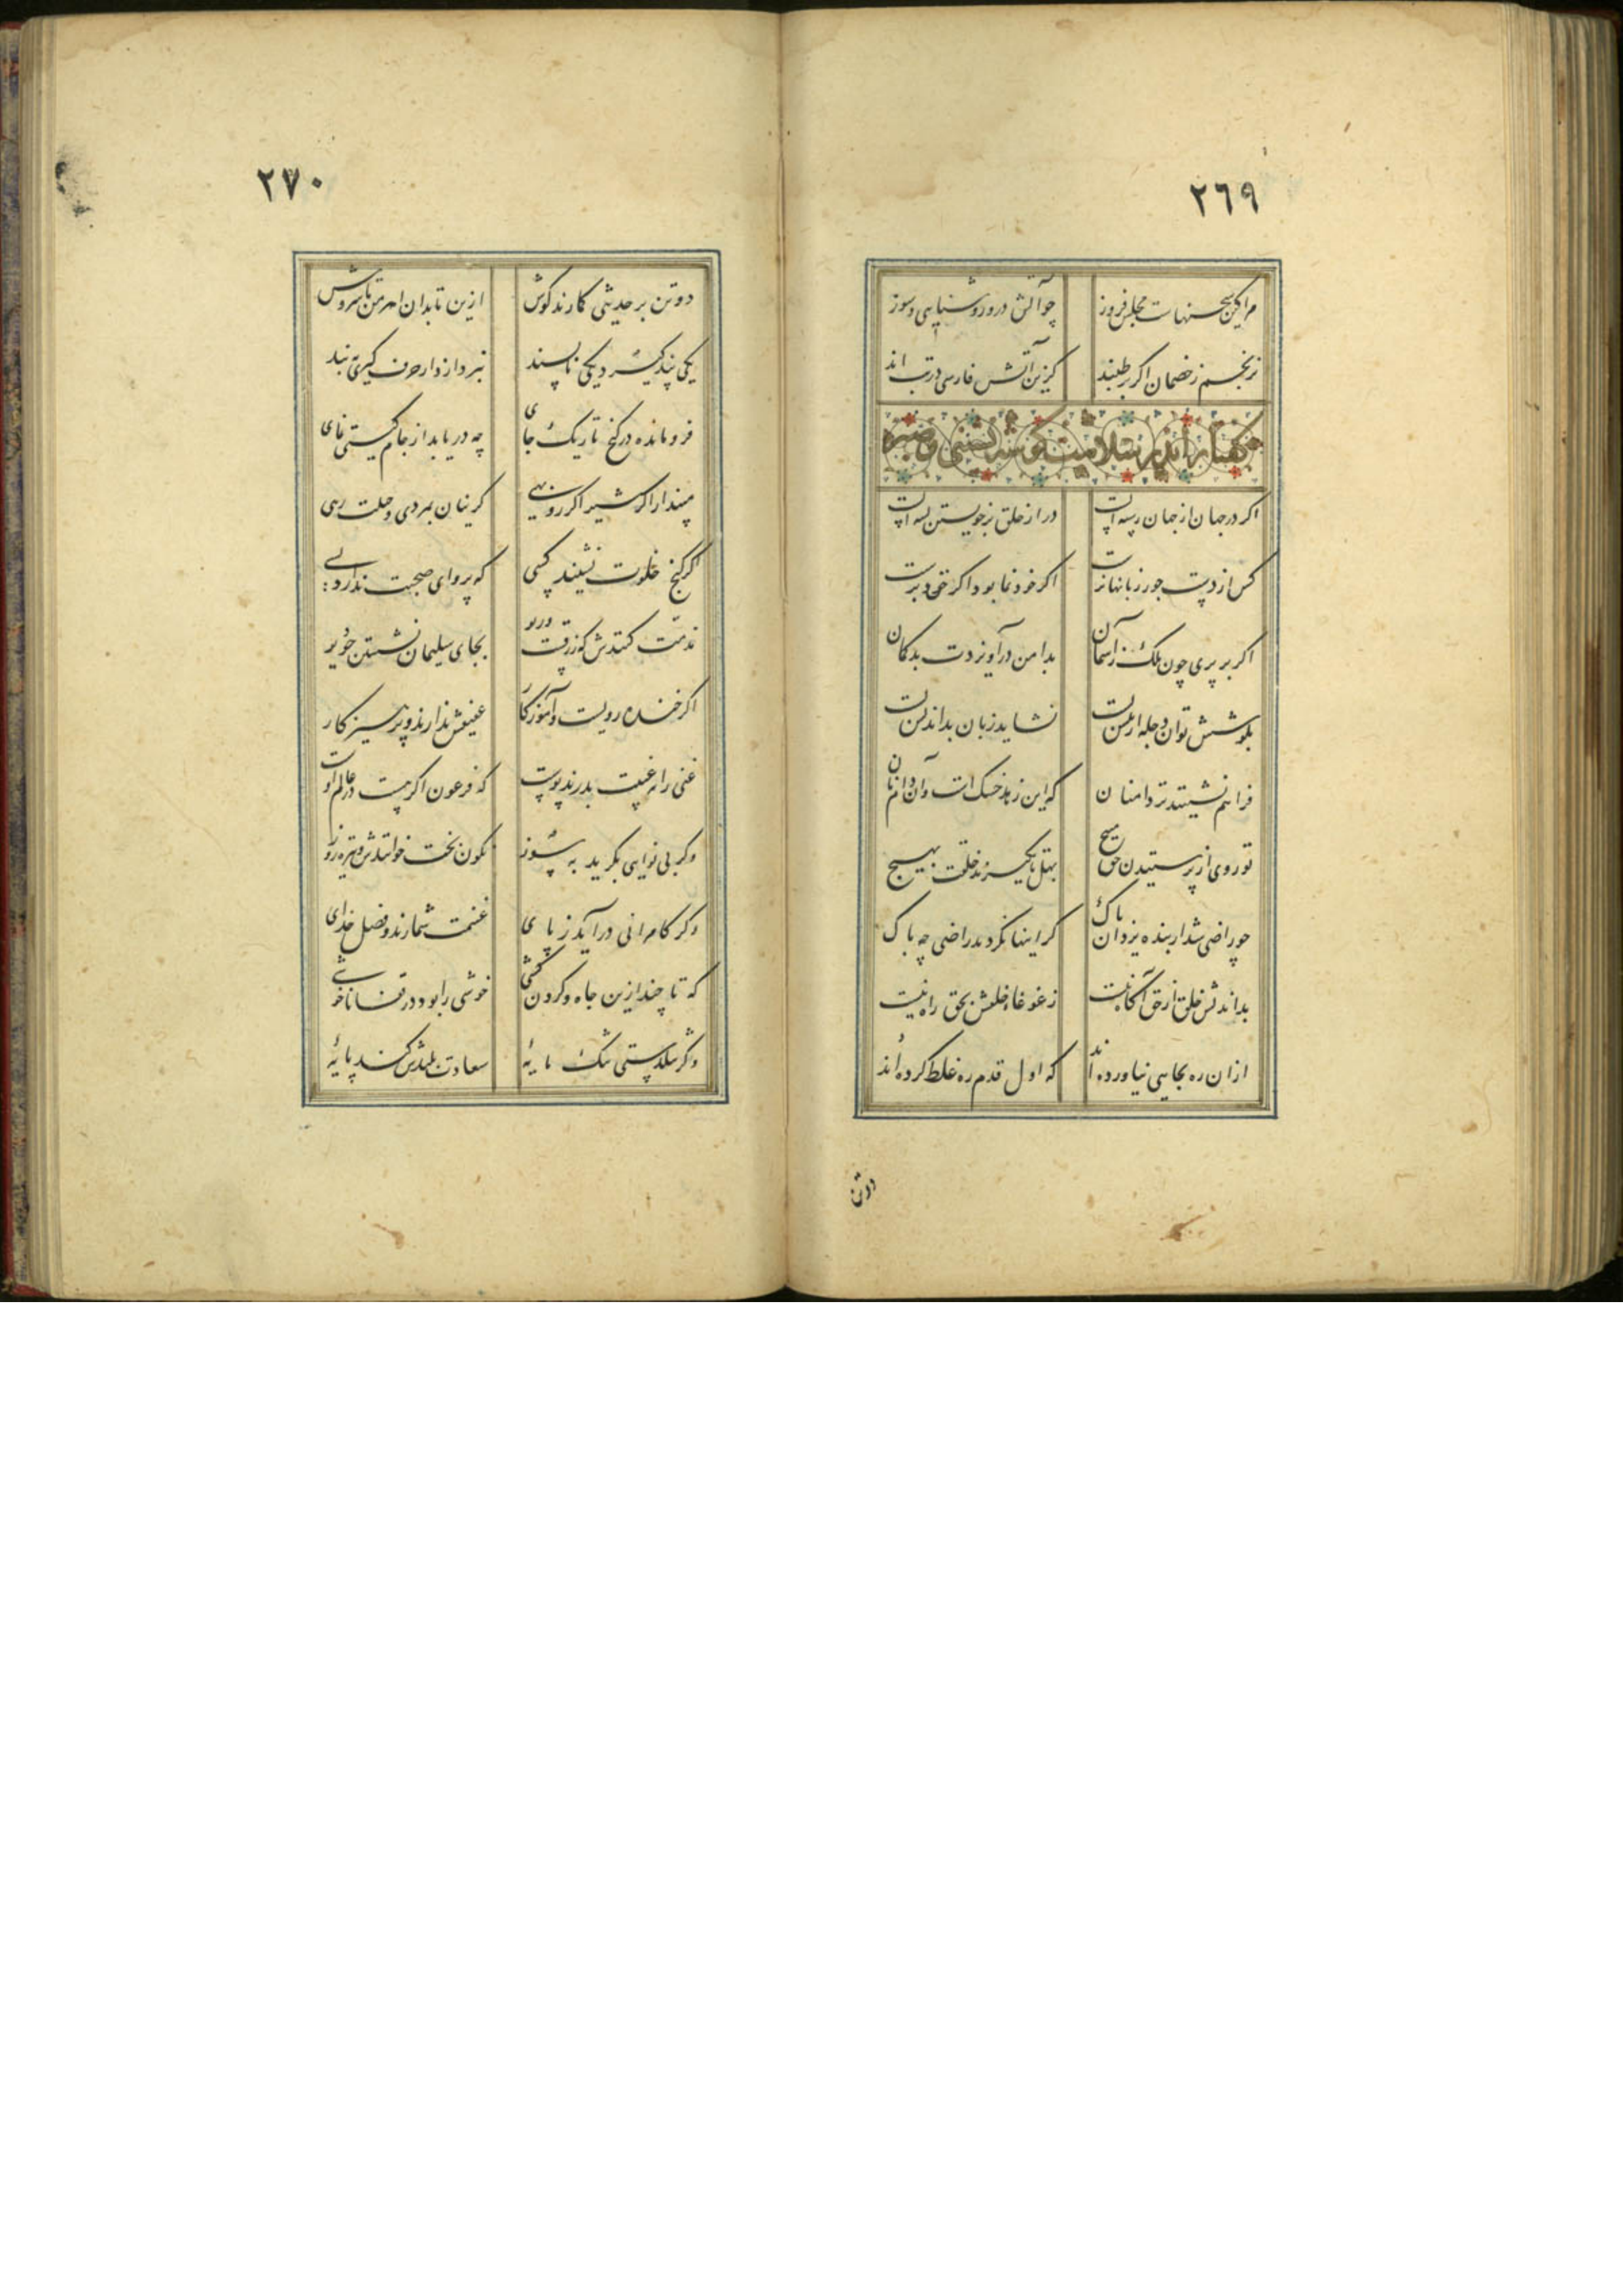 ٢٦٩
مرا کین سخنهاست مجلس فروز
چو آتش درو روشنایی و سوز
نرنجم ز خصمان اگر بر طپند
کزین آتش فارسی در تب اند
گفتار اندر سلامت گوشه نشینی و صبر
اگر در جهان از جهان رسته ایست
در از خلق بر خویشتن بسته ایست
کس از دست جور زبانها نرست
اگر خودنما بود اگر حق پرست
اگر بر پری چون ملک ز آسمان
بدامن در آویزدت بدگمان
بکوشش توان دجله را پیش بست
نشاید زبان بداندیش بست
فراهم نشینند تر دامنان
که این زهد خشک است و آن دام نان
تو روی از پرستیدن حق مپیچ
بهل تا نگیرند خلقت بهیچ
چو راضی شد از بنده یزدان پاک
گر اینها نگردند راضی چه باک
بداندیش خلق از حق آگاه نیست
ز غوغاء خلقش بحق راه نیست
از ان ره بجایی نیاورده اند
که اول قدم ره غلط کرده اند
دوتن
٢٧٠
دوتن بر حدیثی گمارند گوش
ازین تا بدان اهرمن تا سروش
یکی پند گیرد یکی ناپسند
نپردازد از حرف گیری به پند
فرومانده در کنج تاریک جای
چه دریابد از جام گیتی نمای
مپندار اگر شیر اگر روبهی
کزینان بمردی و حیلت رهی
اگر کنج خلوت نشیند کسی
که پروای صحبت ندارد بسی
مذمت کنندش که زرقست و ریو
بجای سلیمان نشستن چو دیو
اگر خنده رویست و آموزگار
عفیفش ندارند و پرهیزگار
غنی را بغیبت بدرند پوست
که فرعون اگر هست در عالم اوست
وگر بی نوایی بگرید به سوز
نگون بخت خوانندش و تیره روز
وگر کامرانی در آید ز پای
غنیمت شمارند و فضل خدای
که تا چند ازین جاه و گردن کشی
خوشی را بود در قفا ناخوشی
وگر تنگدستی تنک مایه
سعادت بلندش کند پایه